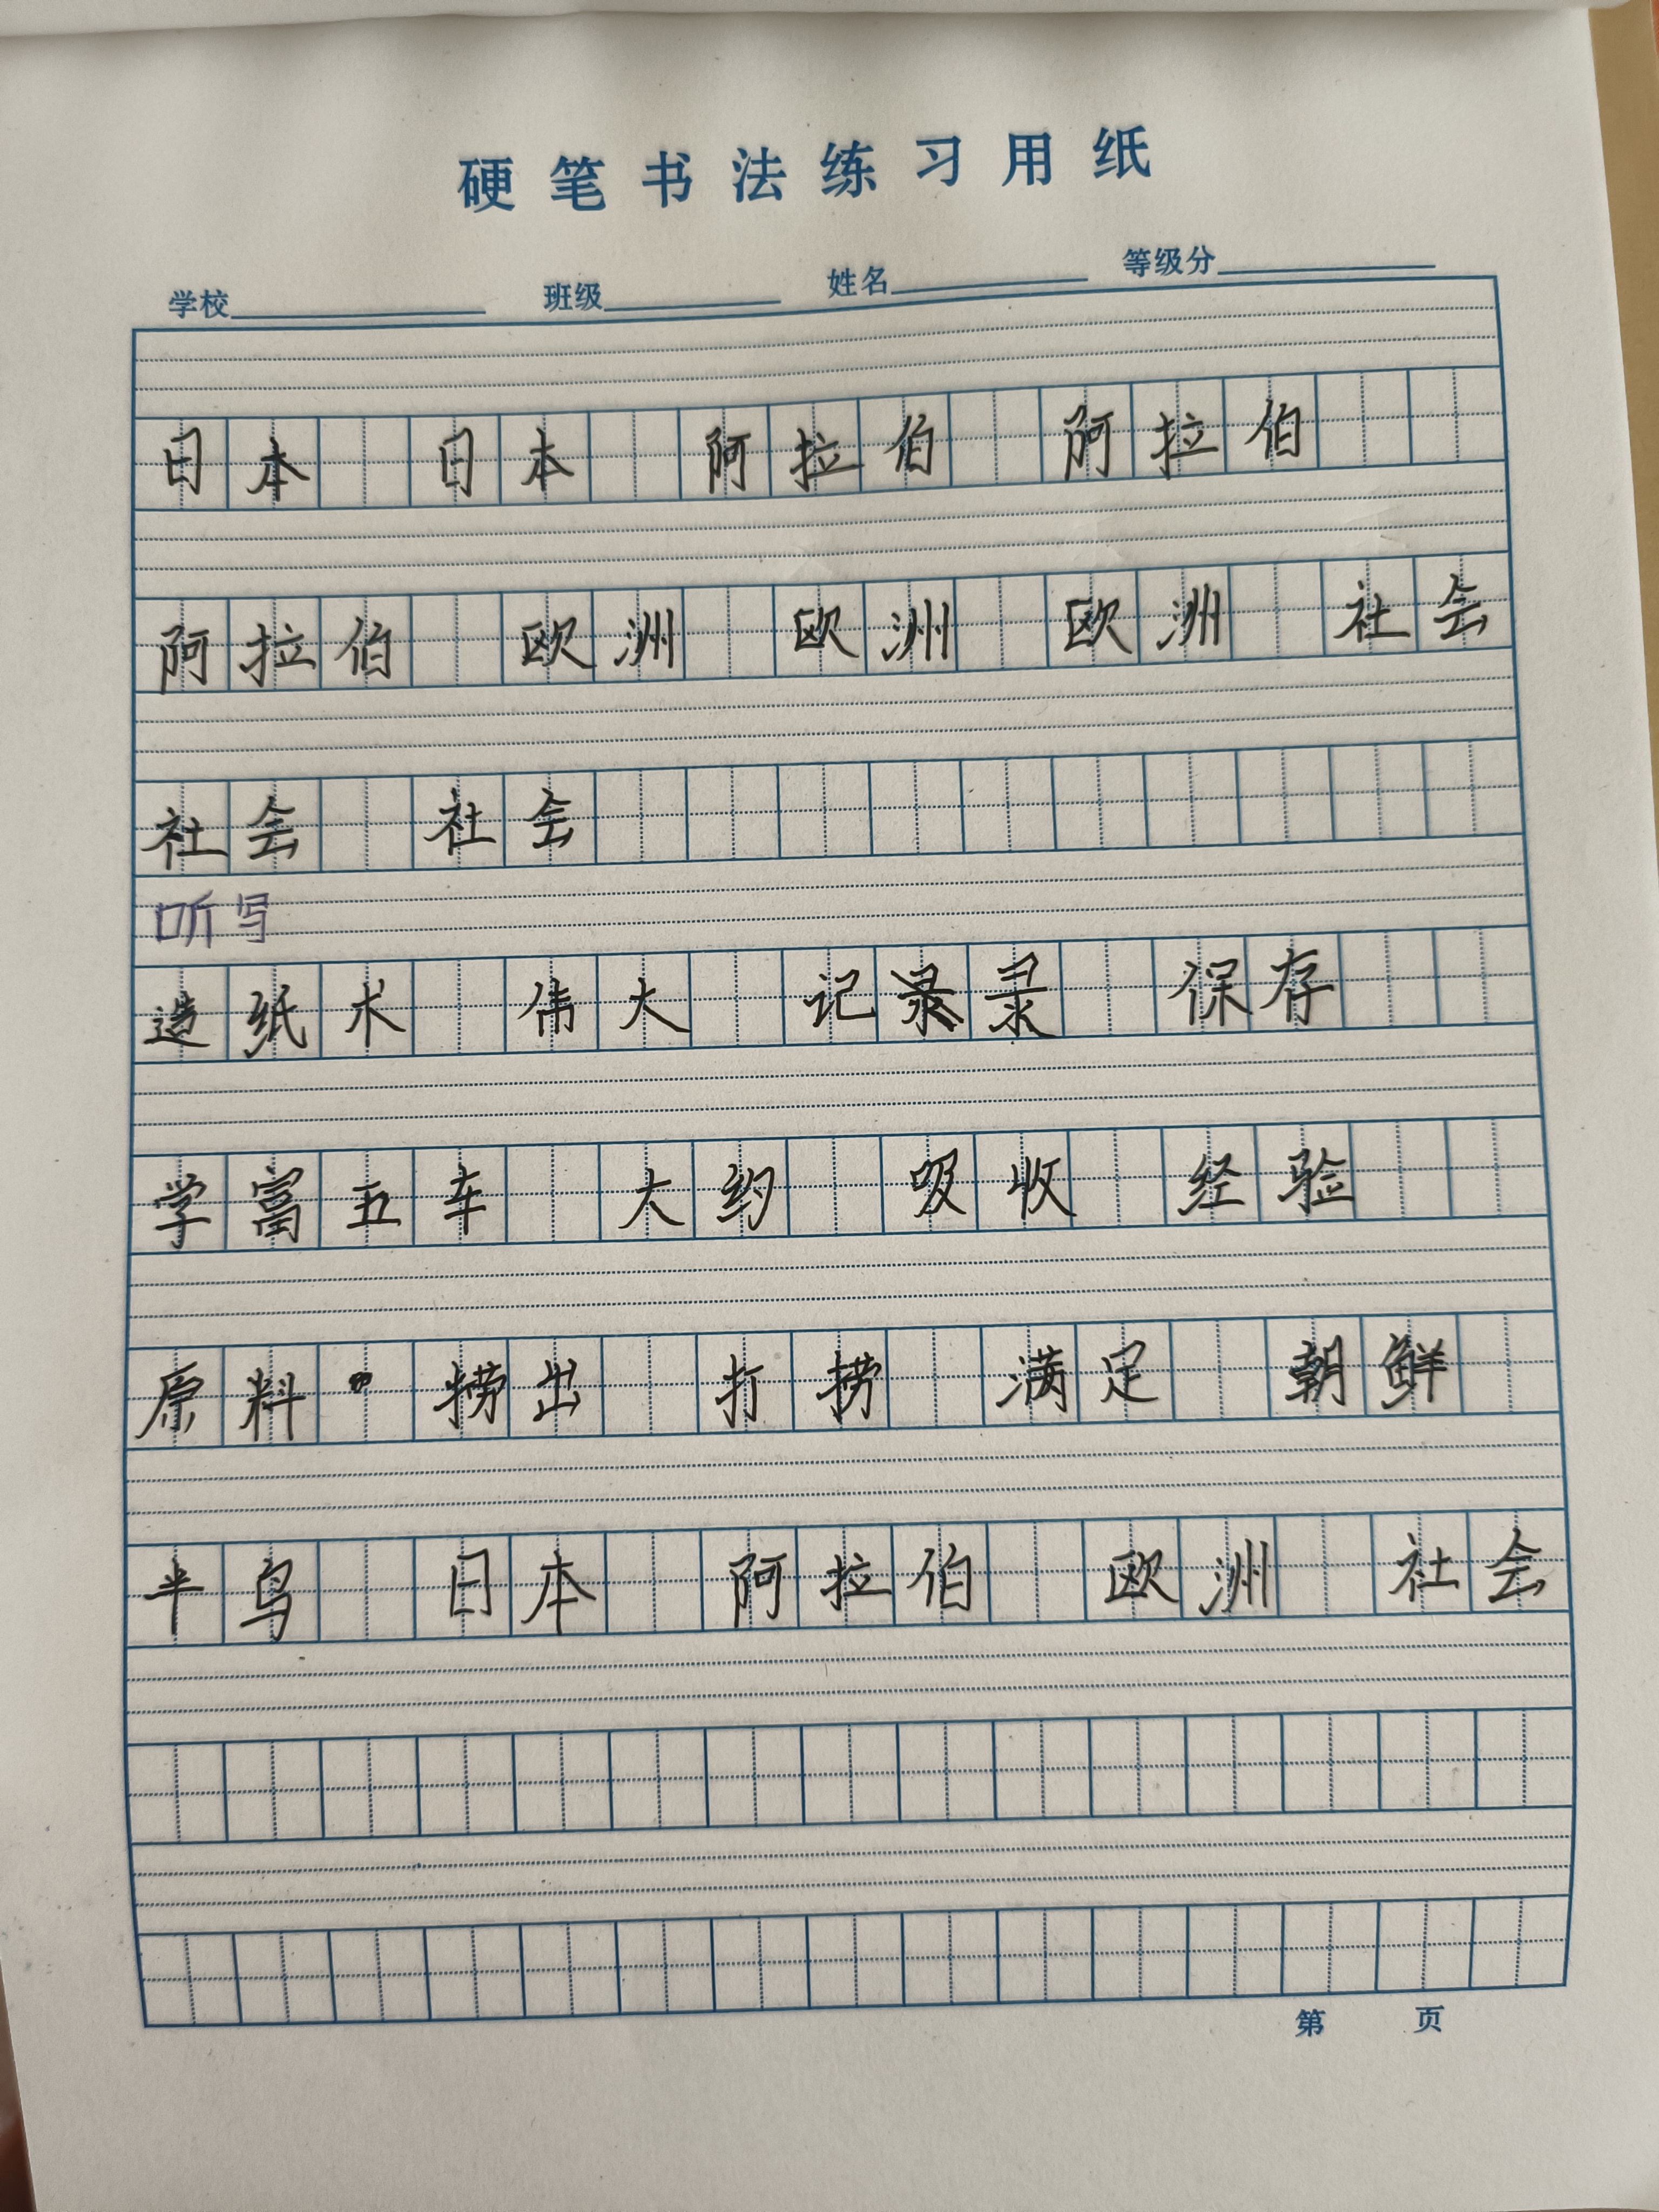 硬笔书法练习用纸
学校 班级 姓名 等级分
日本 日本 阿拉伯 阿拉伯
阿拉伯 欧洲 欧洲 欧洲 社会
社会 社会
听写
造纸术 伟大 记录录 保存
学富五车 大约 吸收 经验
原料 捞出 打捞 满足 朝鲜
半鸟 日本 阿拉伯 欧洲 社会
第 页